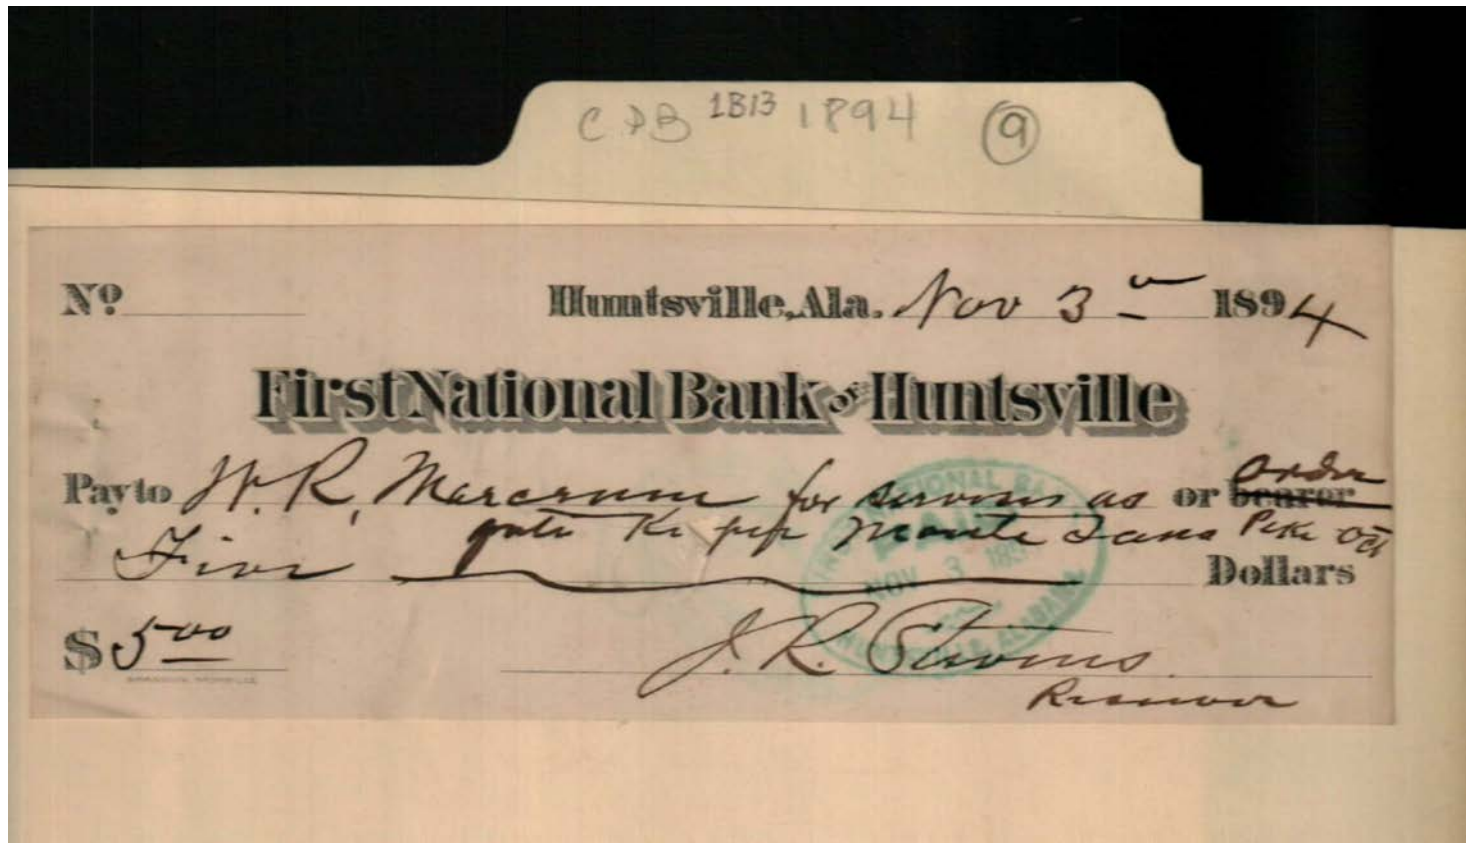 C P B 1B13 1894 9
No Huntsville, Ala. Nov 3 1894
First National Bank of Huntsville
Pay to W. R. Marcrum for services as or bearer order
gate Keeper Monte Sano Pike Oct
Five Dollars
FIRST NATIONAL BANK
PAID
NOV 3 189
HUNTSVILLE, ALABAMA
$ 5 00
J. R. Stevens
Receiver